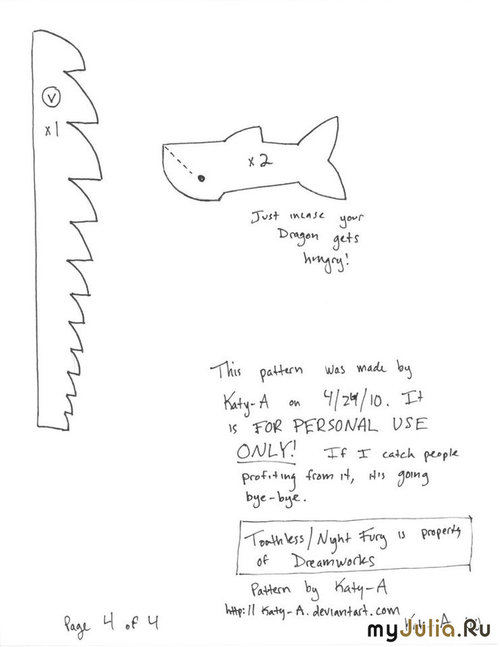 V
x1
x2
Just incase your
Dragon gets
hungry!
This pattern was made by
Katy-A on 4/24/10. It
is FOR PERSONAL USE
ONLY! If I catch people
profiting from it, it's going
bye-bye.
Toothless/Night Fury is property
of Dreamworks
Pattern by Katy-A
http://Katy-A.deviantart.com
Page 4 of 4
myJulia.Ru